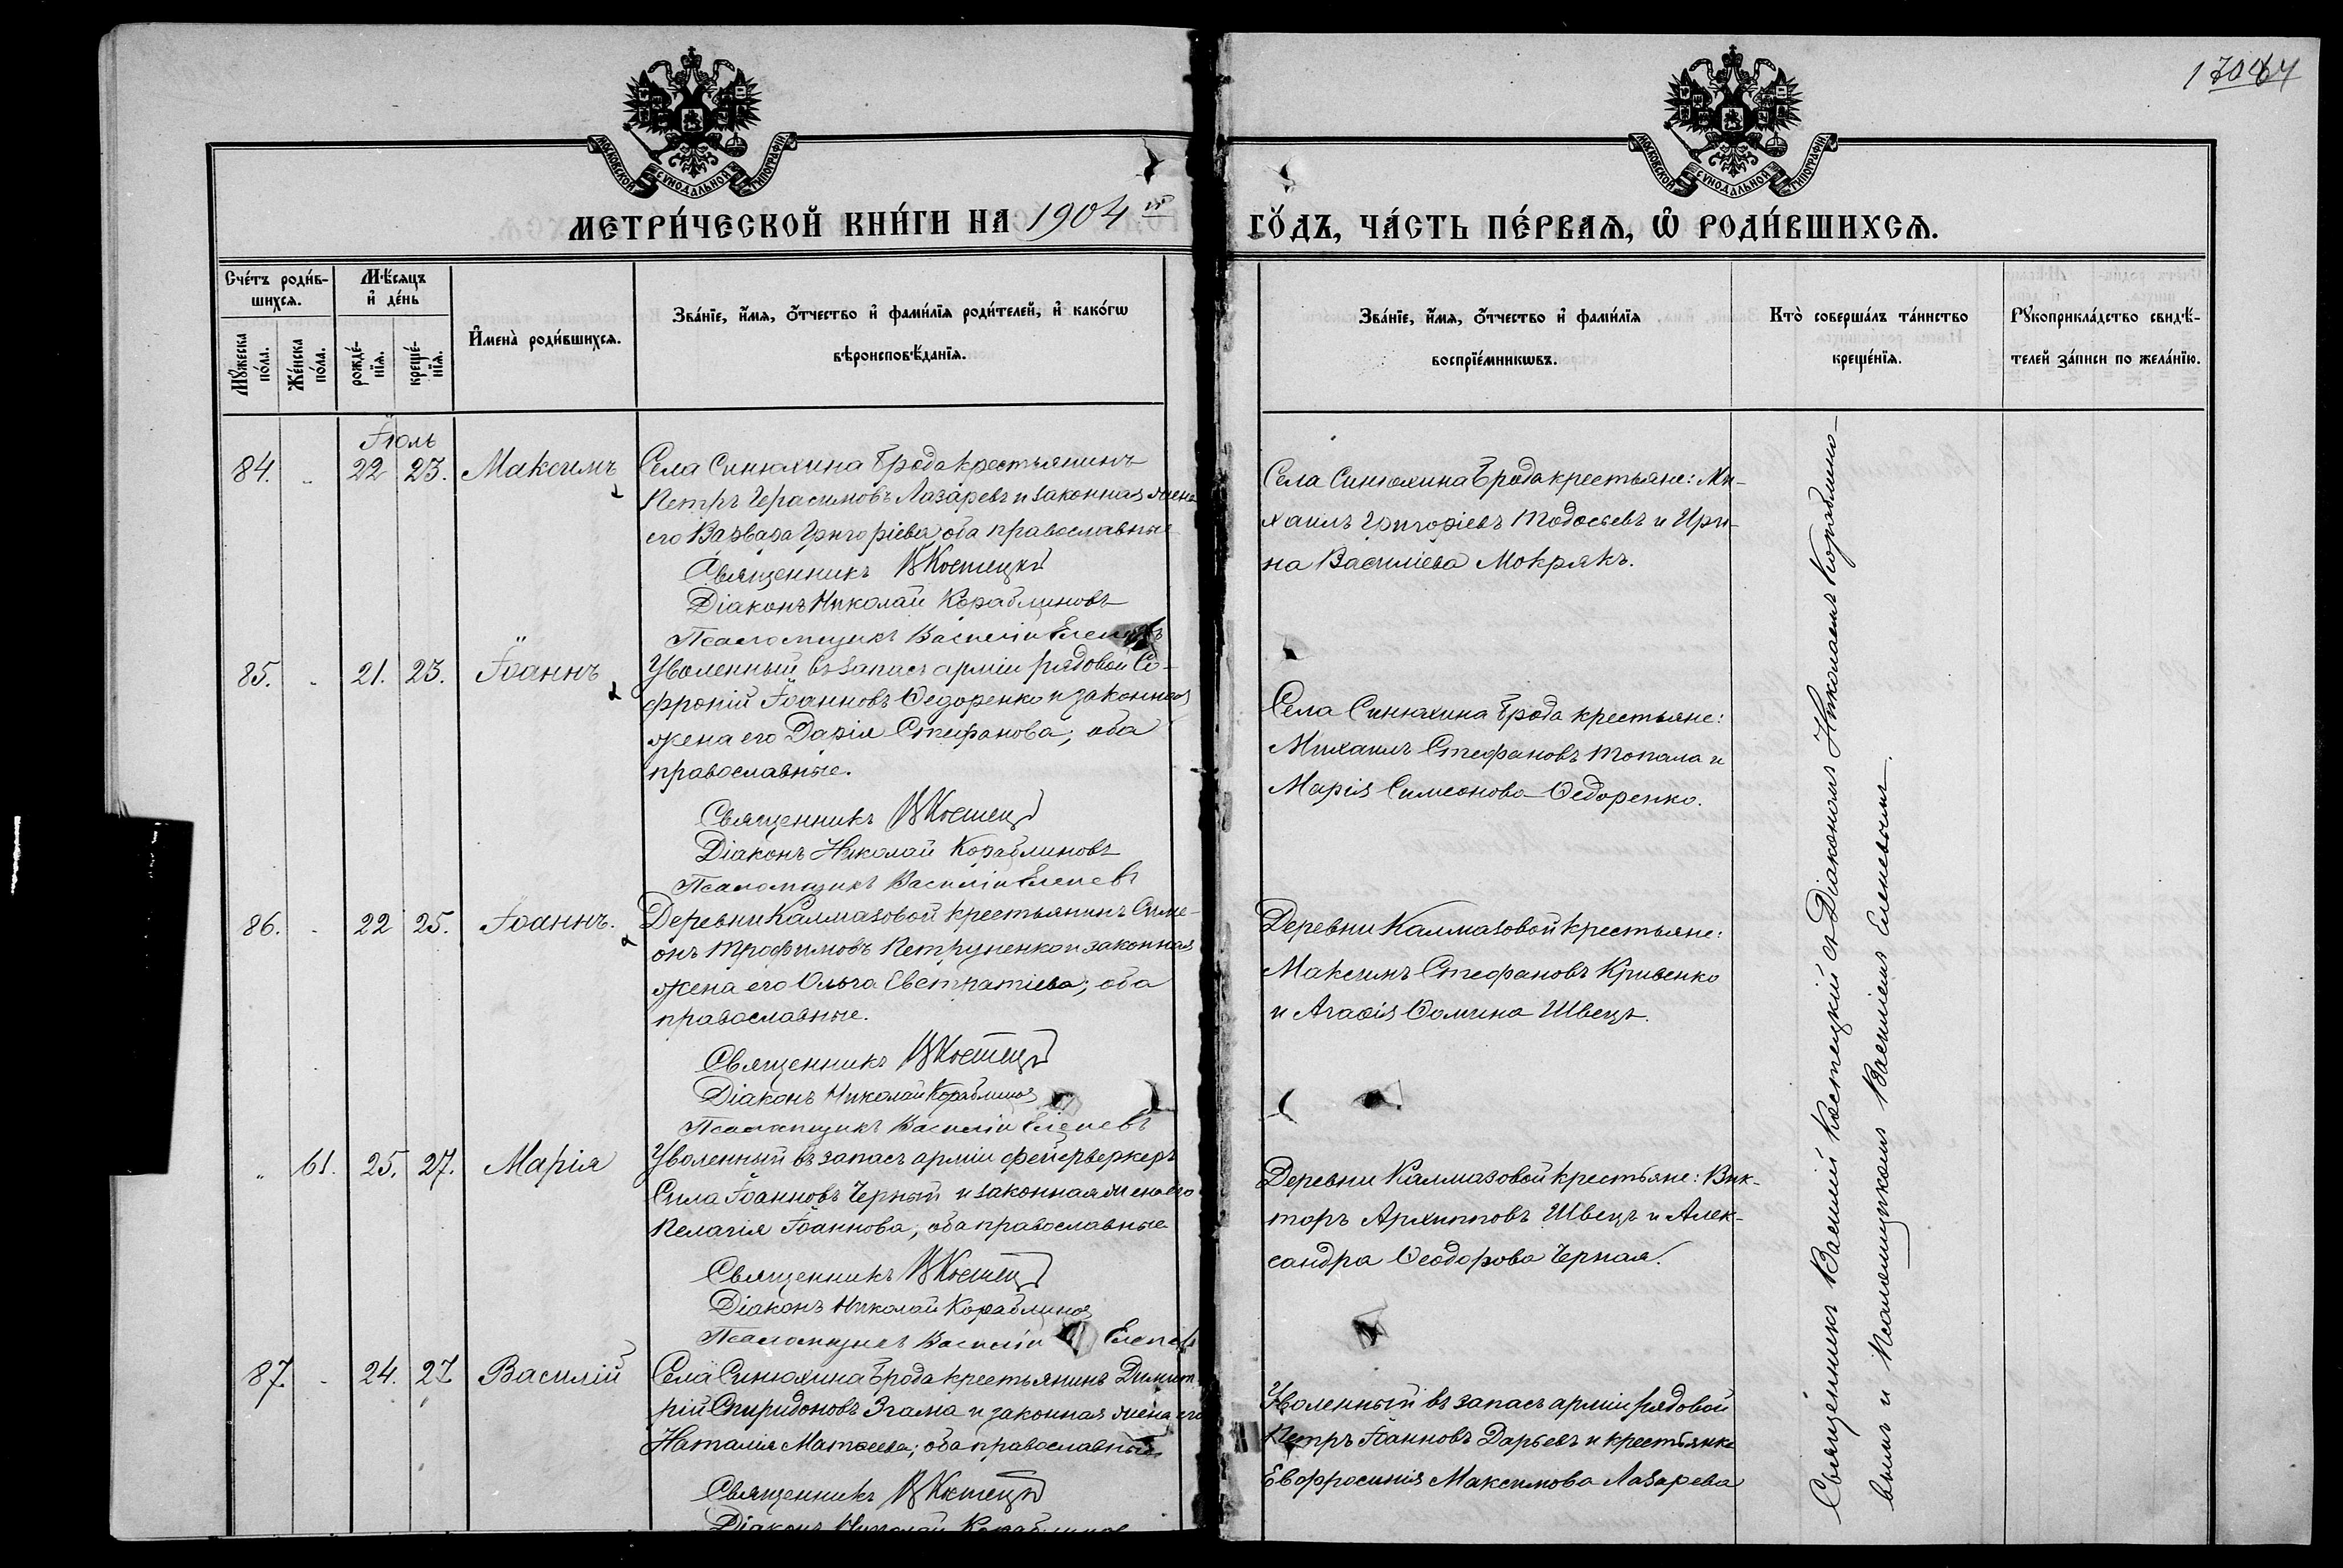 17064
МОСКОВСКОЙ СѴНОДАЛЬНОЙ ТИПОГРАФІИ
МОСКОВСКОЙ СѴНОДАЛЬНОЙ ТИПОГРАФІИ
МЕТРИ́ЧЕСКОЙ КНИ́ГИ НА 1904 й
ГО́ДЪ, ЧА́СТЬ ПЕ́РВАѦ, Ѡ҆ РОДИ́ВШИХСѦ.
Сче́тъ роди́в-
шихсѧ.
Мꙋ́жеска по́ла.
Же́нска по́ла.
Мѣ́сѧцъ
и҆ де́нь
рожде́-
нїѧ.
креще́-
нїѧ.
И҆мена̀ роди́вшихсѧ.
Зва́нїе, и҆́мѧ, ѻ҆́тчество и҆ фами́лїѧ роди́телей, и҆ како́гѡ
вѣроисповѣ́данїѧ.
Зва́нїе, и҆́мѧ, ѻ҆́тчество и҆ фами́лїѧ
воспрїе́мникѡвъ.
Кто̀ соверша́лъ та́инство
креще́нїѧ.
Рꙋкоприкла́дство свидѣ́-
телей за́писи по жела́нїю.
Іюль
84. „ 22 23. Максимъ
Села Синюхина Брода крестьянинъ
Петръ Герасимовъ Лазаревъ и законная жена
его Варвара Григоріева, оба православные
Священникъ В Костецкій
Діаконъ Николай Кораблиновъ
Псаломщикъ Василій Елепевъ
Села Синюхина Брода крестьяне: Ми-
хаилъ Григоріевъ Тодосьевъ и Ири-
на Василіева Мокрякъ.
85. „ 21. 23. Іоаннъ
Уволенный въ запасъ арміи рядовой Со-
фроній Іоанновъ Ѳедоренко и законная
жена его Дарія Стефанова; оба
православные.
Священникъ В Костецкій
Діаконъ Николай Кораблиновъ
Псаломщикъ Василій Елепевъ
Села Синюхина Брода крестьяне:
Михаилъ Стефановъ Топала и
Марія Симеонова Ѳедоренко.
86. „ 22 25. Іоаннъ.
Деревни Калмазовой крестьянинъ Симе-
онъ Трофимовъ Петруненко и законная
жена его Ольга Евстратіева; оба
православные.
Священникъ В Костецкій
Діаконъ Николай Кораблиновъ
Псаломщикъ Василій Елепевъ
Деревни Калмазовой крестьяне:
Максимъ Стефановъ Кривенко
и Агаѳія Ѳомина Швецъ.
„ 61. 25. 27. Марія
Уволенный въ запасъ арміи фейерверкеръ
Сила Іоанновъ Черный и законная жена его
Пелагія Іоаннова; оба православные
Священникъ В Костецкій
Діаконъ Николай Кораблиновъ
Псаломщикъ Василій Елепевъ
Деревни Калмазовой крестьяне: Вик-
торъ Архипповъ Швецъ и Алек-
сандра Ѳеодорова Черная.
87. „ 24. 27 Василій
Села Синюхина Брода крестьянинъ Димит-
рій Спиридоновъ Згама и законная жена его
Наталія Матѳеева; оба православные
Священникъ В Костецкій
Діаконъ Николай Кораблиновъ
Уволенный въ запасъ арміи рядовой
Петръ Іоанновъ Дарьевъ и крестьянка
Евфросинія Максимова Лазарева
Священникъ Василій Костецкій съ Діакономъ Николаемъ Кораблино-
вымъ и Псаломщикомъ Василіемъ Елепевымъ.